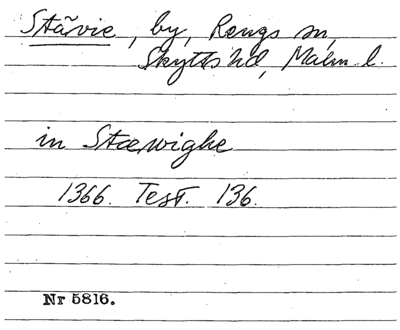 Stävie, by, Rengs sn,
Skytts hd, Malm. l.
in Stæwighe
1366. Test. 136.
Nr 5816.